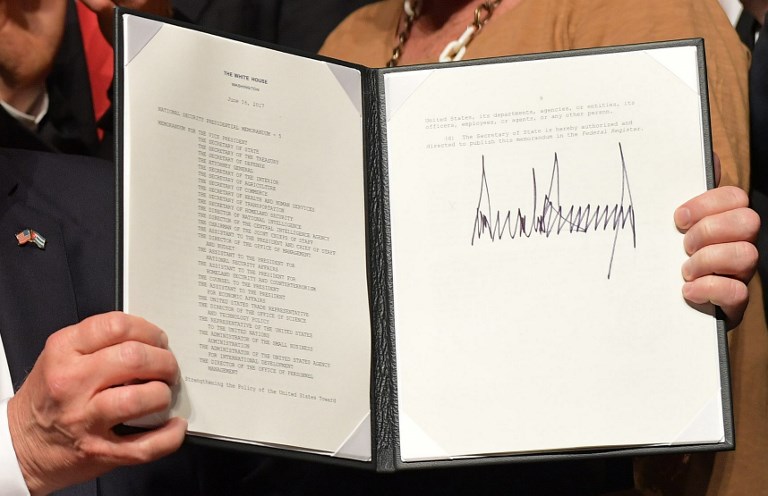 THE WHITE HOUSE
WASHINGTON
June 16, 2017
NATIONAL SECURITY PRESIDENTIAL MEMORANDUM - 5
MEMORANDUM FOR THE VICE PRESIDENT
THE SECRETARY OF STATE
THE SECRETARY OF THE TREASURY
THE SECRETARY OF DEFENSE
THE ATTORNEY GENERAL
THE SECRETARY OF THE INTERIOR
THE SECRETARY OF AGRICULTURE
THE SECRETARY OF COMMERCE
THE SECRETARY OF HEALTH AND HUMAN SERVICES
THE SECRETARY OF TRANSPORTATION
THE SECRETARY OF HOMELAND SECURITY
THE DIRECTOR OF NATIONAL INTELLIGENCE
THE DIRECTOR OF THE CENTRAL INTELLIGENCE AGENCY
THE CHAIRMAN OF THE JOINT CHIEFS OF STAFF
THE ASSISTANT TO THE PRESIDENT AND CHIEF OF STAFF
THE DIRECTOR OF THE OFFICE OF MANAGEMENT
AND BUDGET
THE ASSISTANT TO THE PRESIDENT FOR
NATIONAL SECURITY AFFAIRS
THE ASSISTANT TO THE PRESIDENT FOR
HOMELAND SECURITY AND COUNTERTERRORISM
THE COUNSEL TO THE PRESIDENT
THE ASSISTANT TO THE PRESIDENT
FOR ECONOMIC AFFAIRS
THE UNITED STATES TRADE REPRESENTATIVE
THE DIRECTOR OF THE OFFICE OF SCIENCE
AND TECHNOLOGY POLICY
THE REPRESENTATIVE OF THE UNITED STATES
TO THE UNITED NATIONS
THE ADMINISTRATOR OF THE SMALL BUSINESS
ADMINISTRATION
THE ADMINISTRATOR OF THE UNITED STATES AGENCY
FOR INTERNATIONAL DEVELOPMENT
THE DIRECTOR OF THE OFFICE OF PERSONNEL
MANAGEMENT
Strengthening the Policy of the United States Toward
United States, its departments, agencies, or entities, its
officers, employees, or agents, or any other person.
(d) The Secretary of State is hereby authorized and
directed to publish this memorandum in the Federal Register.